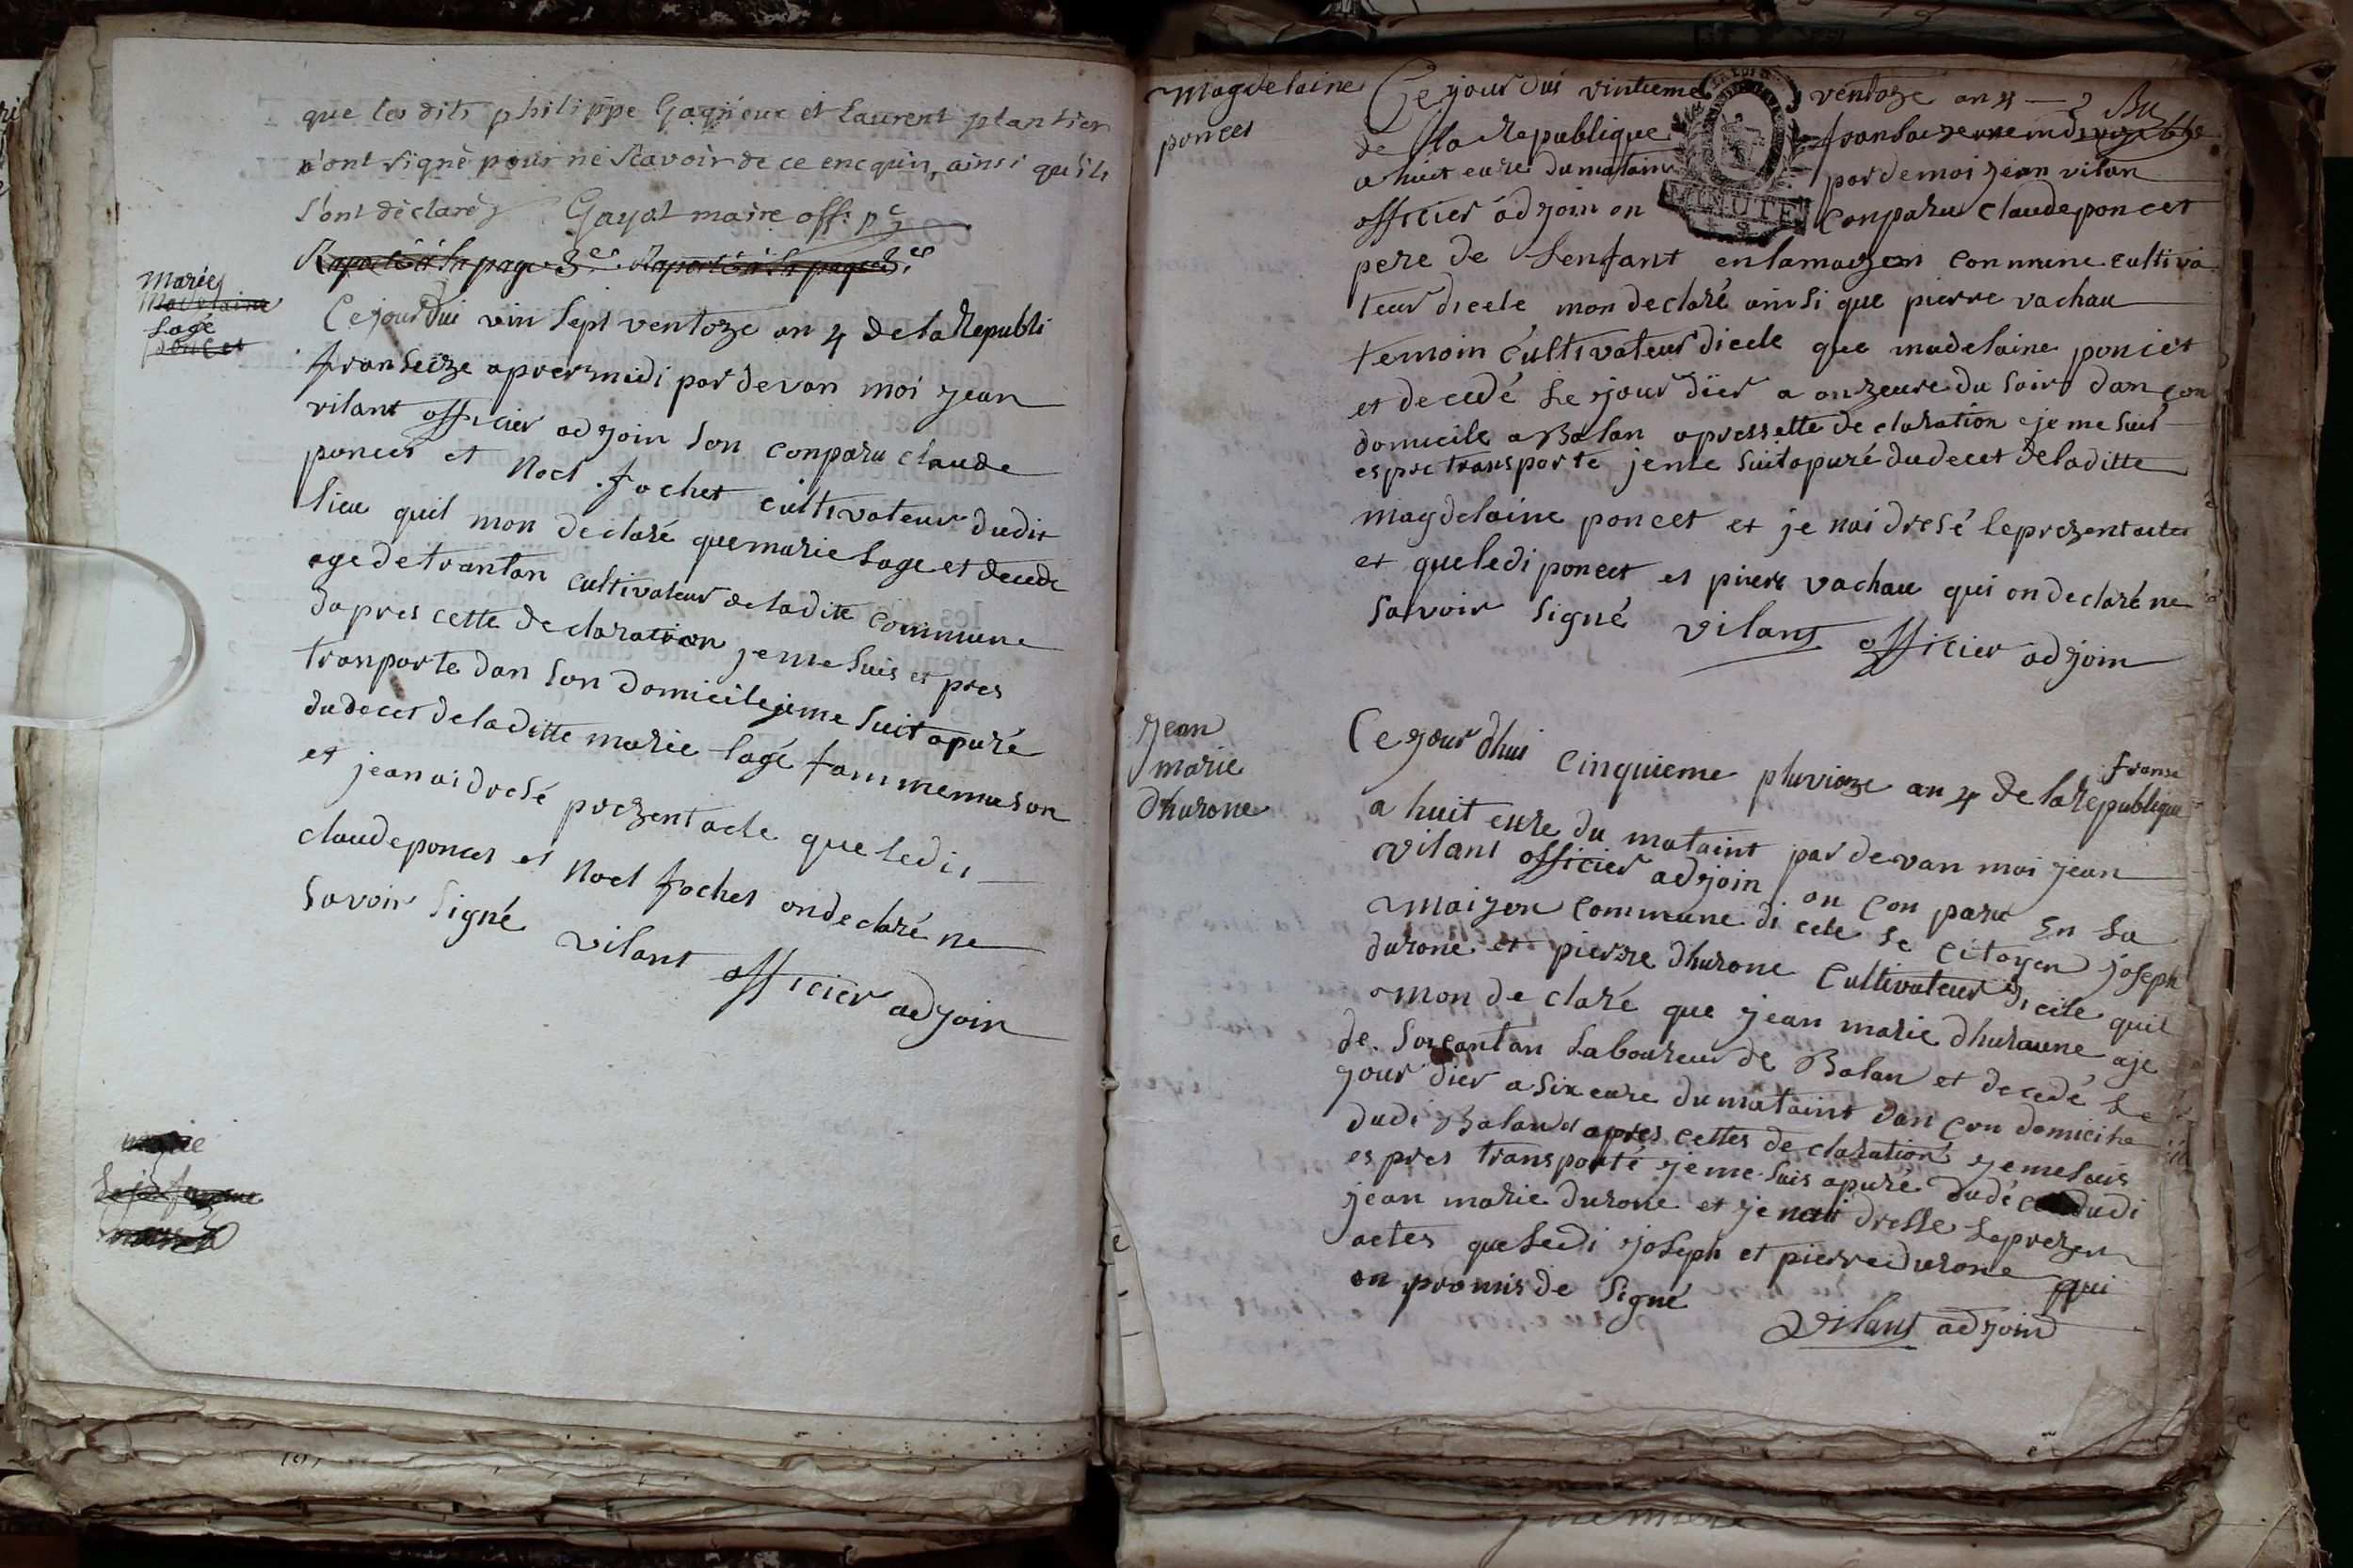 que les dits philippe Gagneux et Laurent plantier
n'ont signé pour ne sçavoir de ce encquin, ainsi qu'ils
l'ont déclaré Gayat maire off. p.c
Raporté à la page 3ee Raporté à la page 3.ee
Marie
Madelaine
Lagé
poncet
Cejourdui vin sept ventoze an 4 de la Republi
franseize apres midi par devan moi jean
vilant officier adjoin son conparu claude
poncet et Noel fochet cultivateur dudit
lieu quil mon declaré que marie Lage et decede
age de trantan cultivateur de la dite Commune
dapres cette declaration je me suis es pres
tranporte dan son domicile je me suit apuré
du deces de laditte marie lagé
et jean ai dresé prezent acte que ledit
claude poncet et Noel fochet on declaré ne
savoir signé vilant officier adjoin
marie
Magdelaine
poncet
Ce jour dui vintieme ventoze an 4
de la Republique
a huit eure du matain par de moi jean vilan
officier adjoin on Conparu Claude poncet
MINUTE
pere de Lenfant en la maizon commune cultiva
teur dicele mon declaré ainsi que pierre vachau
temoin cultivateur dicele que madelaine poncet
et decedé le jour dier a onze eure du soir dan con
domicile a Balan apres cette declaration je me suit
espre transporte je me suit apuré du decet de laditte
magdelaine poncet et je nai dresé le prezent actes
et que ledi poncet et piere vachau qui on declaré ne
savoir signé vilant officier adjoin
jean
marie
Dhurone
Ce jour dhui cinquieme pluvioze an 4 de la republique franse
a huit eure du mataint par devan moi jean
vilant officier adjoin on con paru En la
maizon commune di cele le citoyen joseph
durone et pierre dhurone cultivateur di cele quil
mon de claré que jean marie dhuraune aje
de soixantan Laboureur de Balan et decedé Le
jour dier a six eure du mataint dan con domicile
dudi Balan dapres cettes declaration je me suis
es pres transporté je me suis apuré du décé dudi
jean marie durone et je nai dresse le prezen
actes que ledi joseph et pierre durone qui
on promis de signé
Vilant adjoin